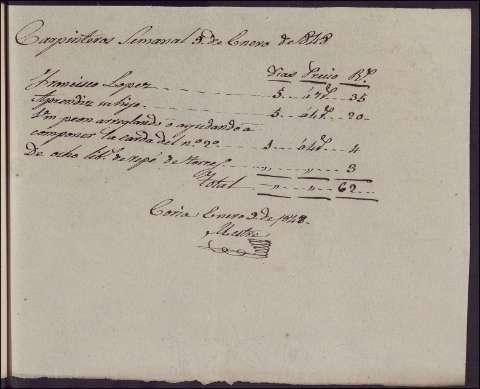 Carpinteros Semanal 3 de Enero de 1848
Dias Precio R.s
Francisco Lopez 5 á 7 r.s 35
Aprendiz su hijo 5 á 4 r.s 20
Un peon arreglando o ayudando a
componer la caida del n.º 2º 1 á 4 r.s 4
De ocho lib.s de de 3
Total " " 62
Coria Enero 3 de 1848.
Mestre